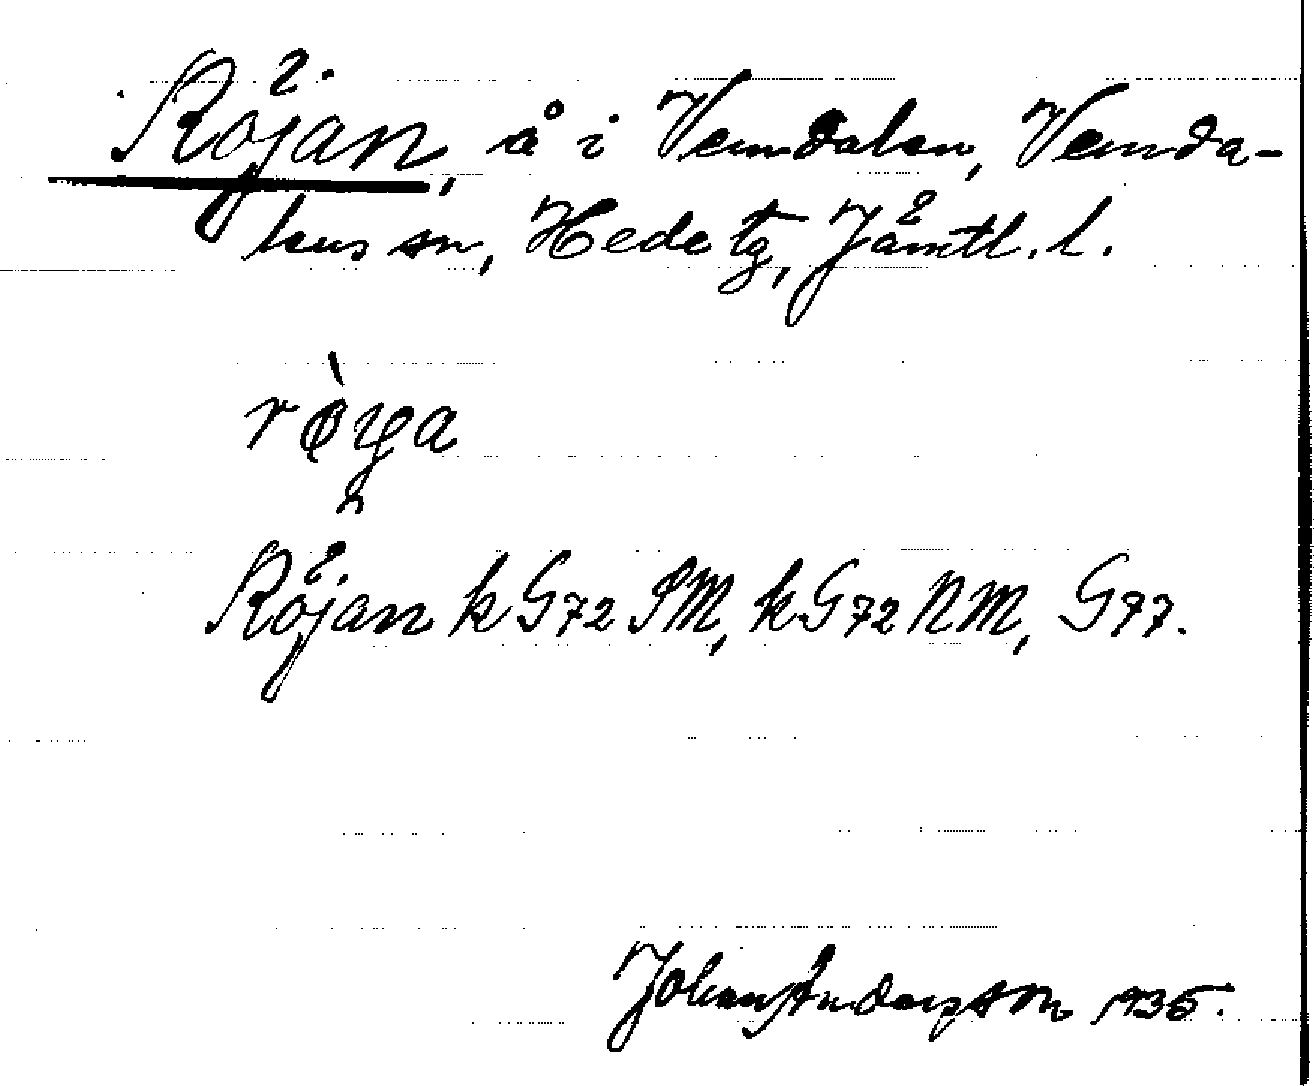 Röjan, å i Vemdalen, Vemda-
lens sn, Hede tg, Jämtl. l.
rø̀ya
Röjan k G72 SM, k G72 NM, G77.
Johan Anderson 1935.